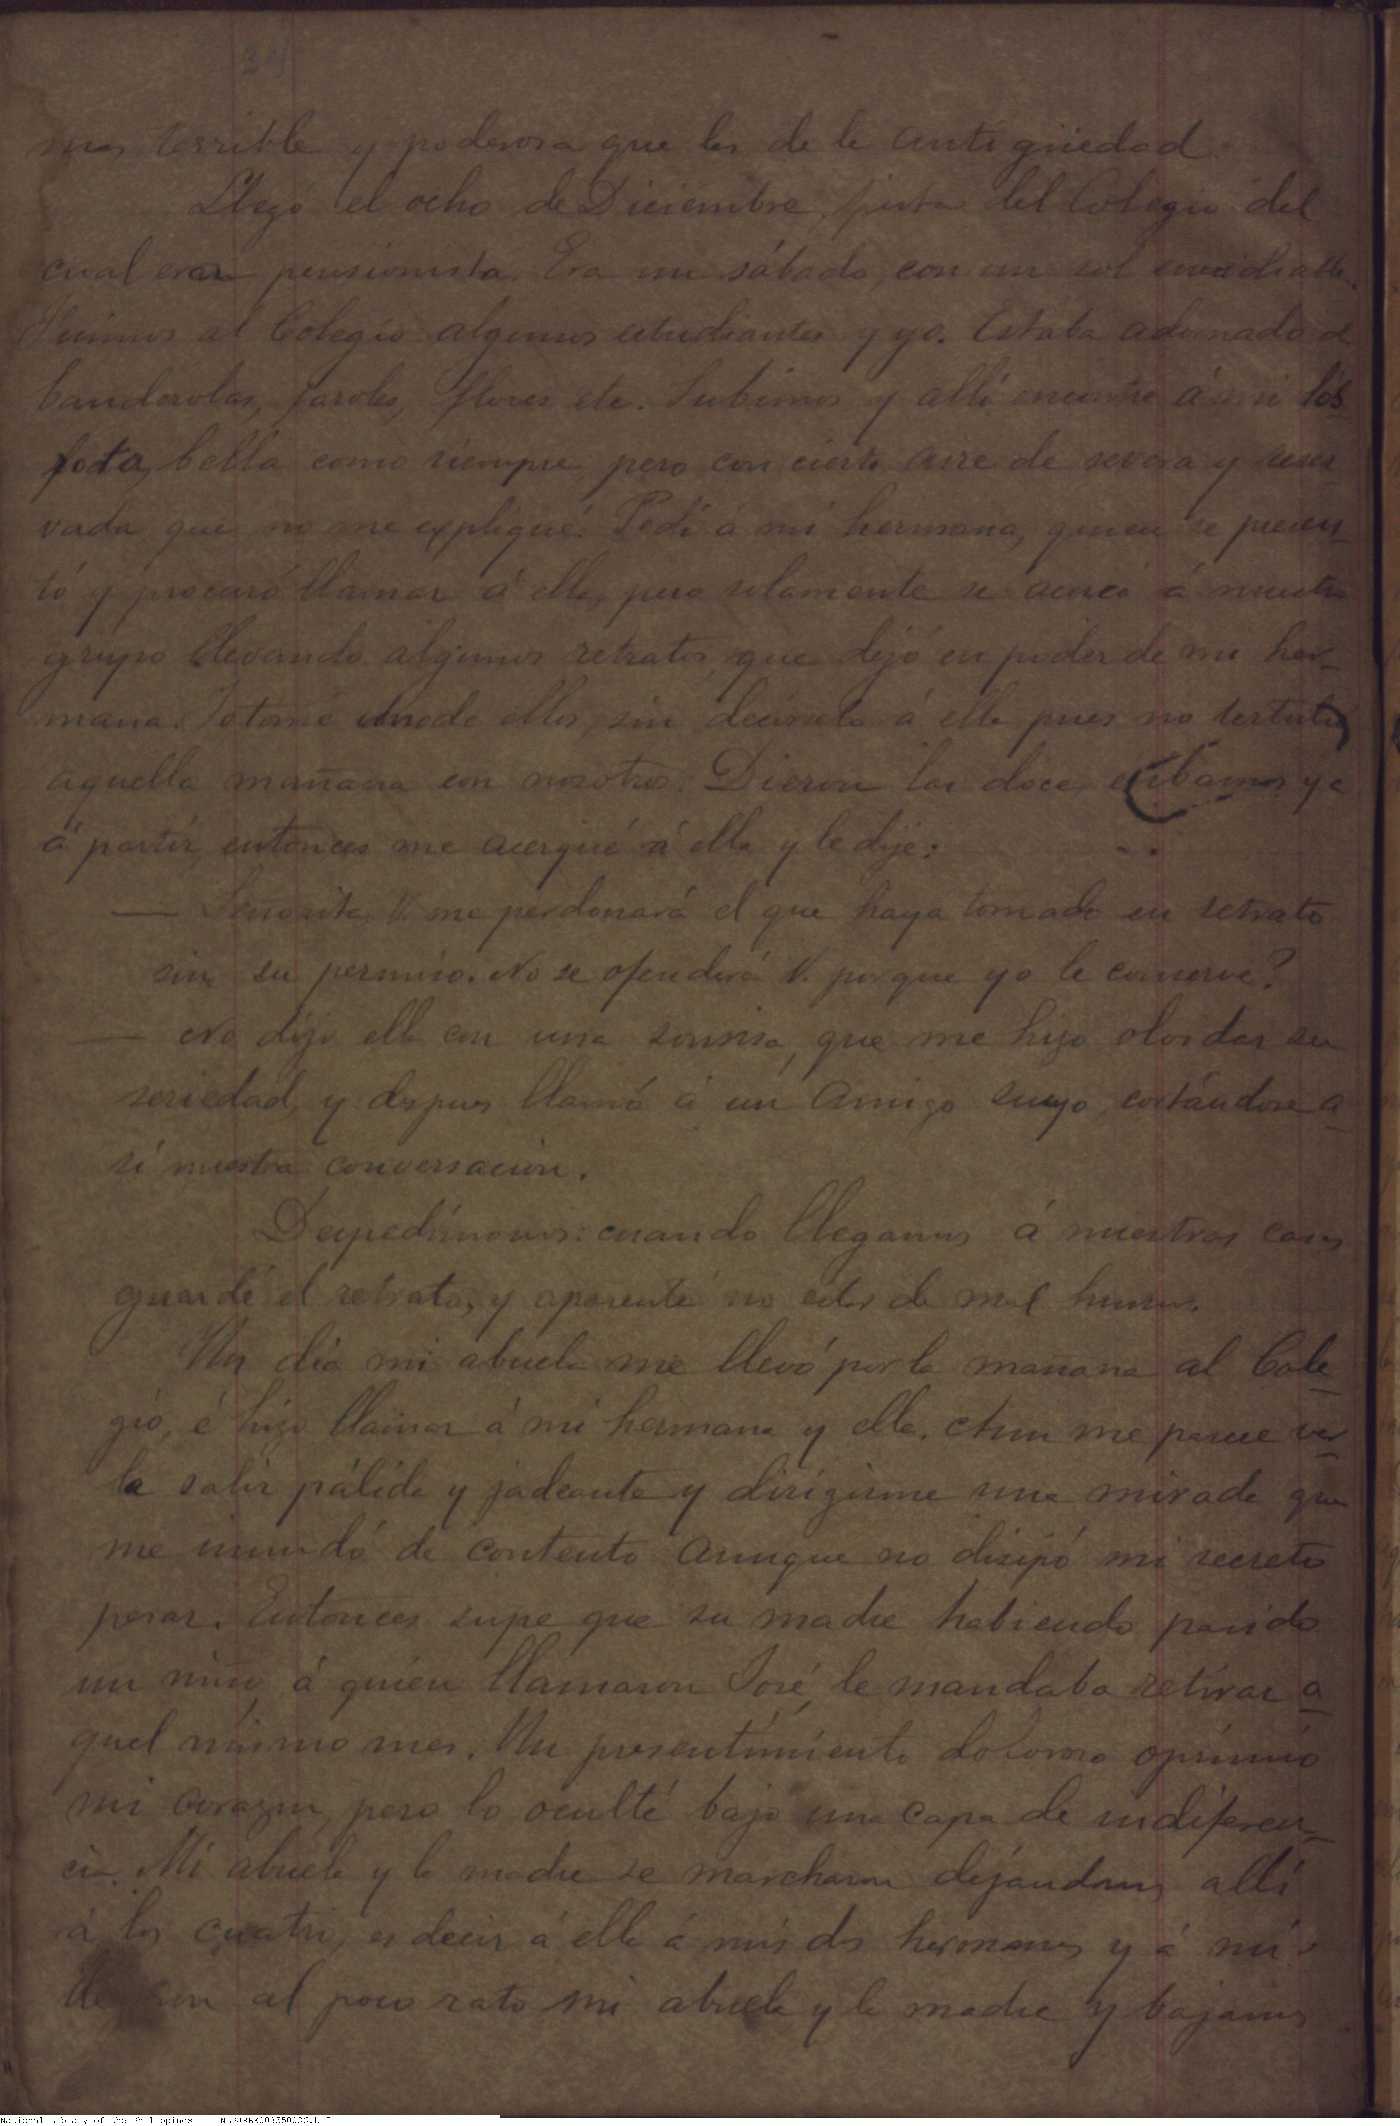 34
mas terrible y poderosa que las de la antigüedad.
Llegó el ocho de Diciembre, fiesta del Colegio del
cual eran pensionista. Era un sábado, con un sol envidiable.
Fuimos al Colegio algunos estudiantes y yo. Estaba adornado de
banderolas, faroles, flores etc. Subimos y allí encontre á mi
bella como siempre, pero con cierto aire de severa y reser-
vada que no me expliqué. Pedí á mi hermana, quien se presen-
tó y procuró llamar á ella, pero solamente se acercó á nuestro
grupo llevando algunos retratos, que dejó en poder de mi her-
mana. Yo tomé uno de ellos, sin decírselo á ella pues no tertulió
aquella mañana con nosotros. Dieron las doce, é íbamos ya
á partir, entonces me acerqué á ella y le dije:
— Señorita, V. me perdonará el que haya tomado su retrato
sin su permiso. No se ofenderá V. porque yo le conserve?
— No dijo ella con una sonrisa, que me hizo olvidar su
seriedad, y despues llamó á un amigo suyo, cortándose a-
sí nuestra conversación.
Despedímonos: cuando llegamos á nuestras casas
guardé el retrato, y aparenté no estar de mal humor.
Un día mi abuela me llevó por la mañana al Cole-
gio, é hizo llamar á mi hermana y ella. Aun me parece ver-
la salir pálida y jadeante y dirigirme una mirada que
me inundó de contento aunque no disipó mi secreto
pesar. Entonces supe que su madre habiendo parido
un niño, á quien llamaron José, le mandaba retirar a-
quel mismo mes. Un presentimiento doloroso oprimió
mi corazon, pero lo oculté bajo una capa de indiferen-
cia. Mi abuela y la madre se marcharon dejándonos allí
á los cuatro, es decir á ella á mis dos hermanas y á mí
al poco rato mi abuela y la madre y bajamos
National Library of the Philippines